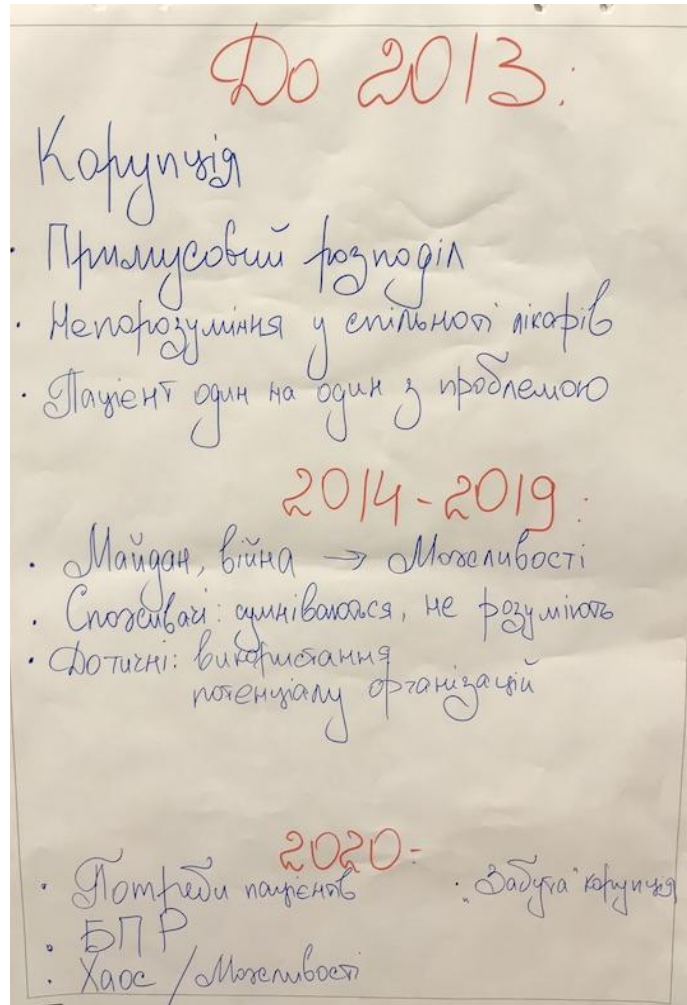 До 2013:
Корупція
· Примусовий розподіл
· Непорозуміння у спільноті лікарів
· Пацієнт один на один з проблемою
2014-2019:
· Майдан, війна → Можливості
· Споживачі: сумніваються, не розуміють
· Дотичні: використання
потенціалу організацій
2020-
· Потреби пацієнтів · "Забута" корупція
· БПР
· Хаос / Можливості